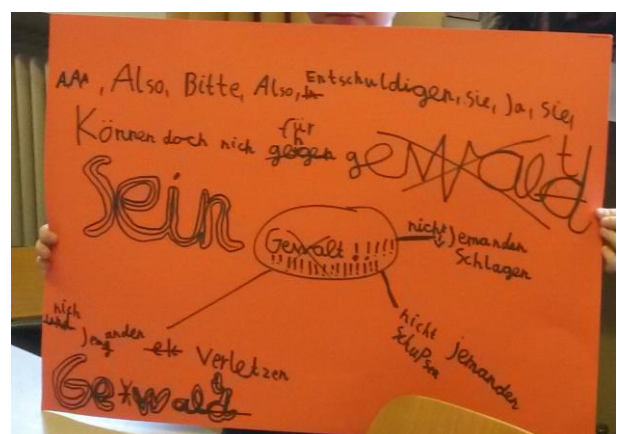 AAA, Also, Bitte, Also, Entschuldigen, sie, Ja, sie,
Können doch nich gegen für gewalt
Sein
Gewalt!!!!!
!!!!!!!!!!!!
nicht Jemanden
Schlagen
nicht jemanden
Schupsen
nich
Jemanden verletzen
Ge walt